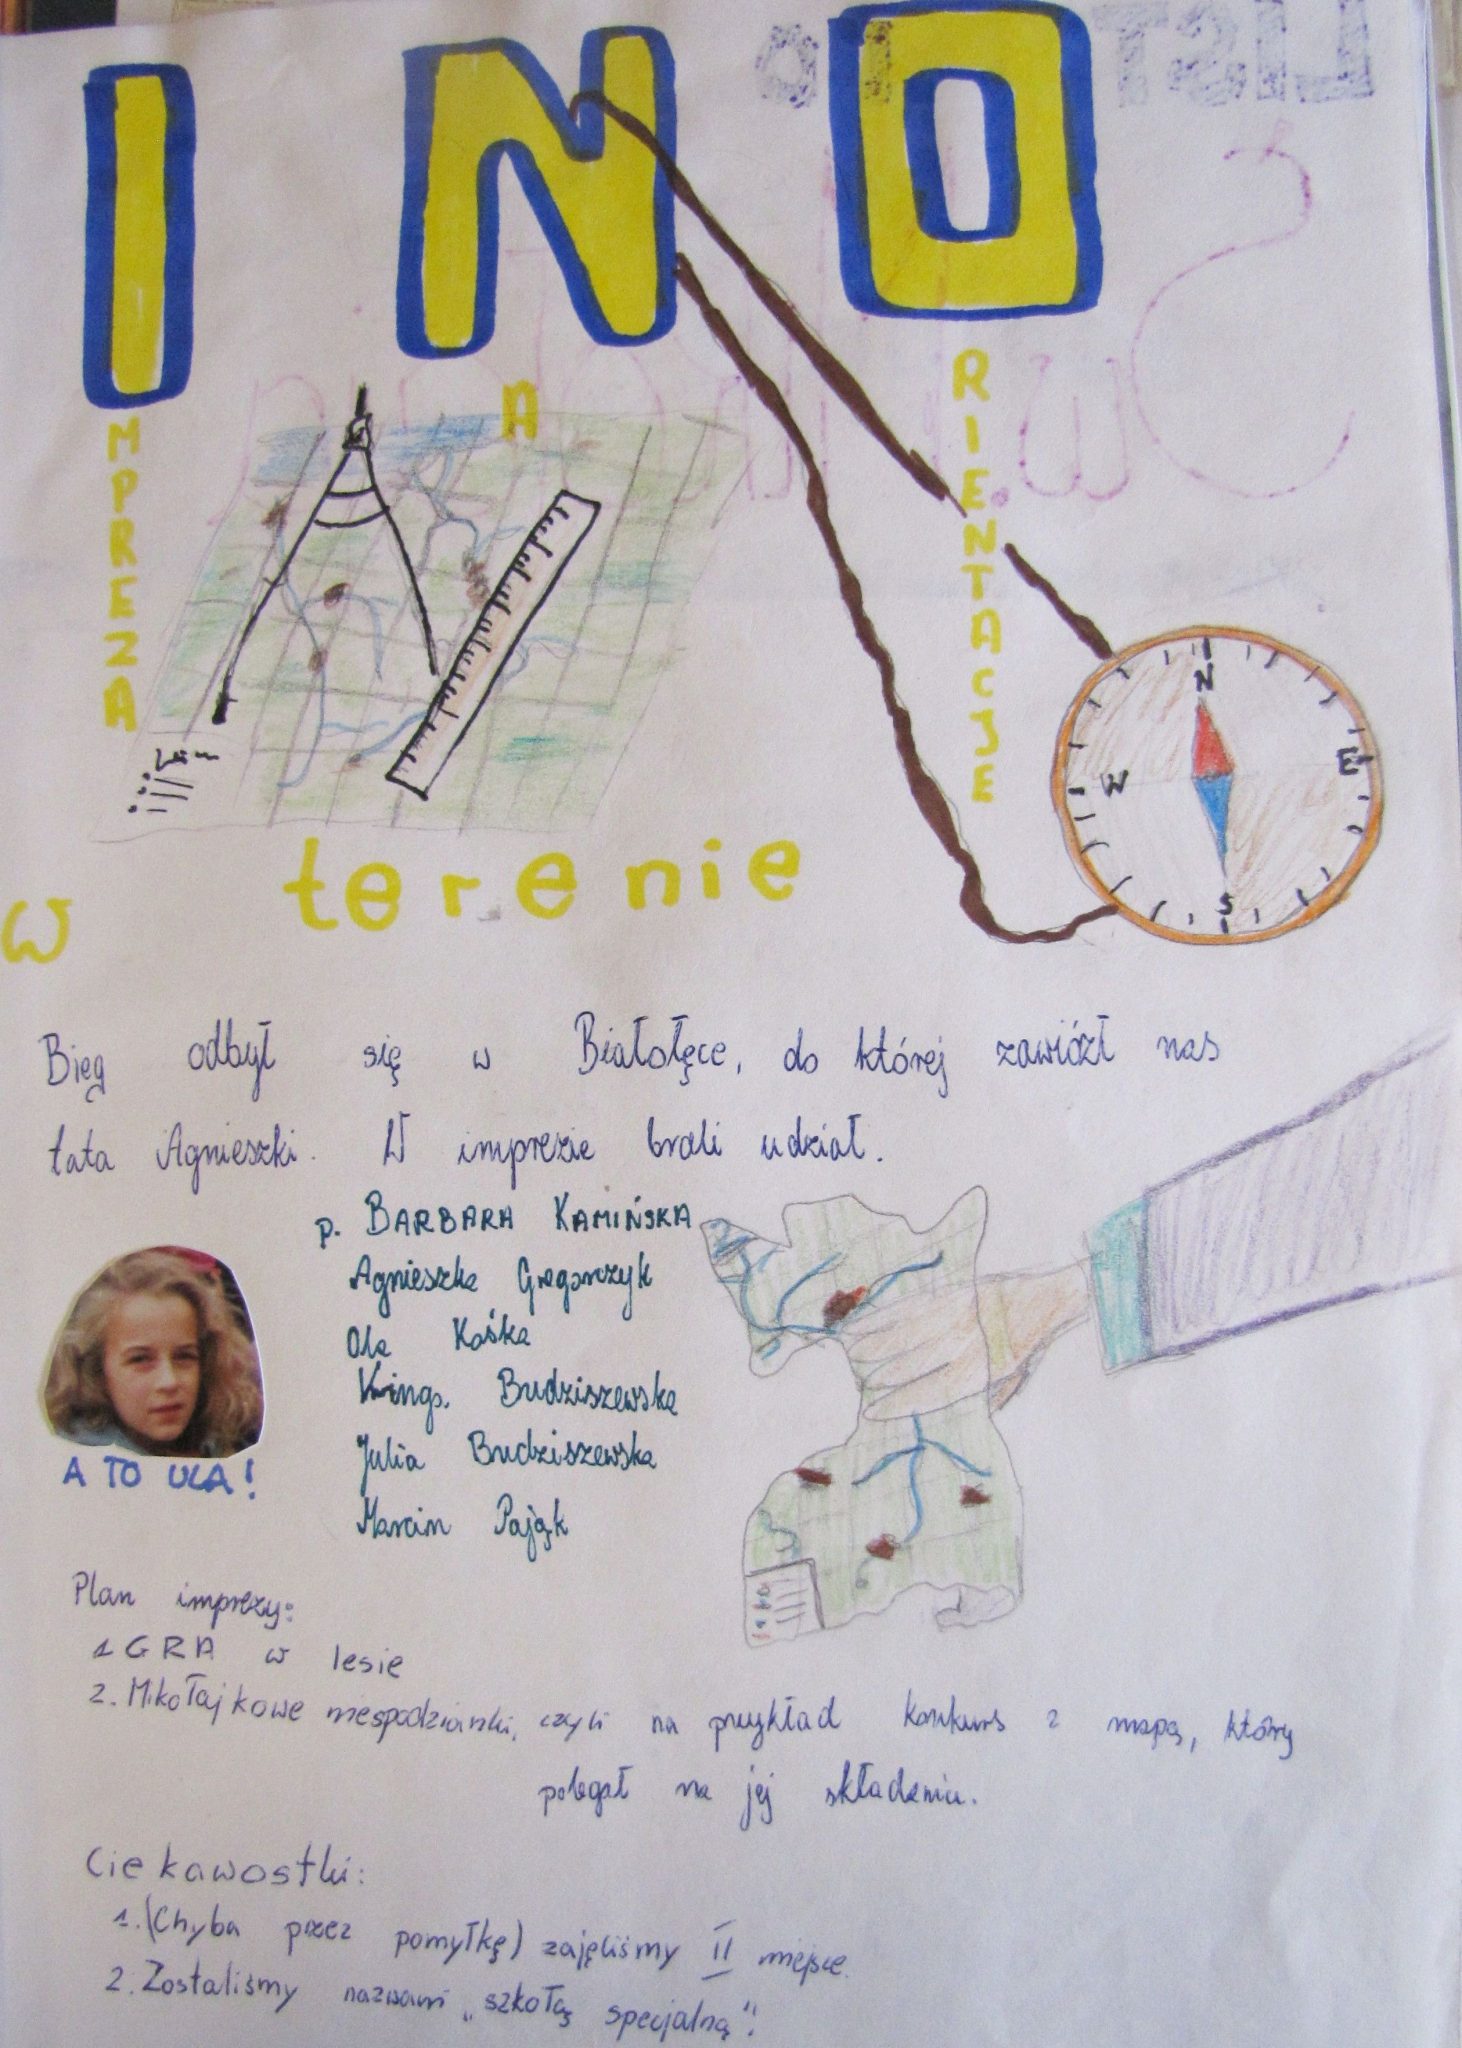 INO
IMPREZA
NA
ORIENTACJE
w terenie
N
E
S
W
Bieg odbył się w Białołęce, do której zawiózł nas
tata Agnieszki. W imprezie brali udział.
p. BARBARA KAMIŃSKA
Agnieszka Gregorczyk
Ola Kośka
Kinga Budziszewska
Julia Budziszewska
Marcin Pająk
A TO ULA!
Plan imprezy:
1 GRA w lesie
2. Mikołajkowe niespodzianki, czyli na przykład konkurs z mapą, który
polegał na jej składaniu.
Ciekawostki:
1. (Chyba przez pomyłkę) zajęliśmy II miejsce.
2. Zostaliśmy nazwani „szkołą specjalną".